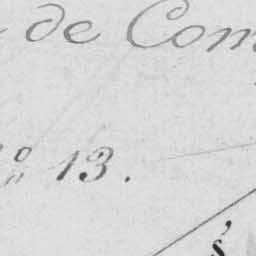 de Com
№ 13.